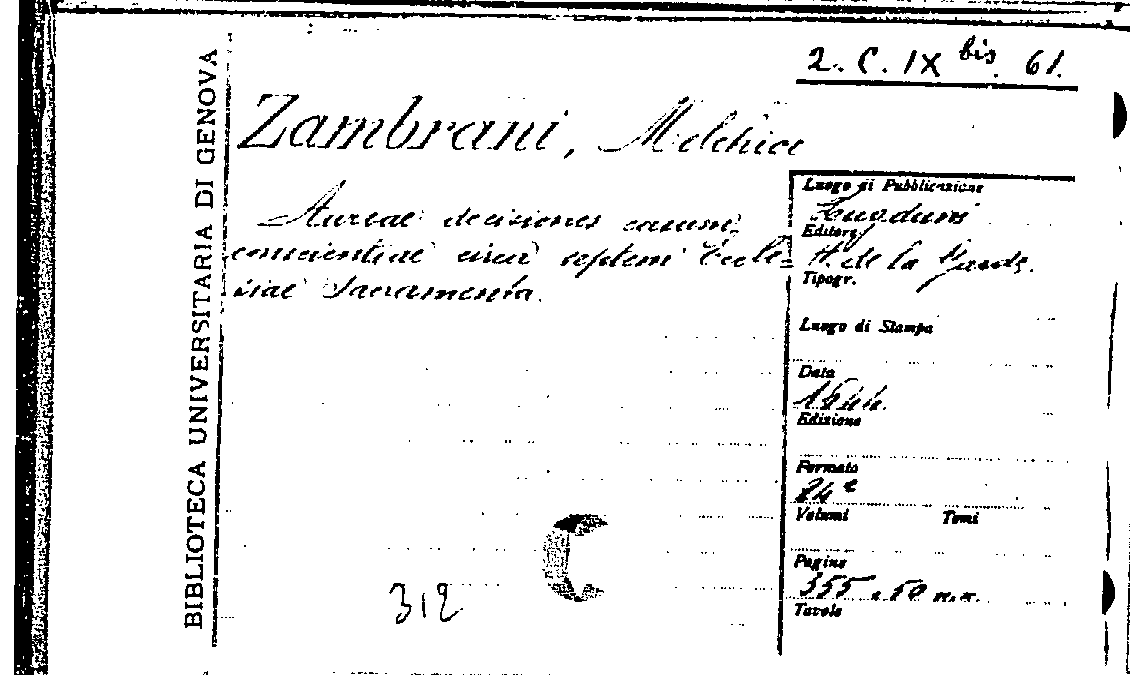 2. C. IX bis. 61.
BIBLIOTECA UNIVERSITARIA DI GENOVA
Zambrani, Melchior
Aureae decisiones casuum
conscientiae circa septem Eccle=
siae Sacramenta.
Luogo di Pubblicazione
Lugduni
Editore
H. de la Garde.
Tipogr.
Luogo di Stampa
Data
1644.
Edizione
Formato
24°
Volumi Tomi
Pagine
355 + 50 n.n.
Tavole
312